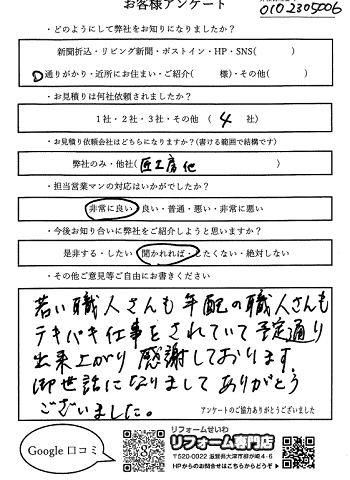 お客様アンケート
0102305006
・どのようにして弊社をお知りになりましたか?
新聞折込・リビング新聞・ポストイン・HP・SNS( )
通りがかり・近所にお住まい・ご紹介( 様)・その他( )
・お見積りは何社依頼されましたか?
1社・2社・3社・その他 ( 4 社)
・お見積り依頼会社はどちらになりますか?(書ける範囲で結構です)
弊社のみ・他社( 匠工房他 )
・担当営業マンの対応はいかがでしたか?
非常に良い・良い・普通・悪い・非常に悪い
・今後お知り合いに弊社をご紹介しようと思いますか?
是非する・したい・聞かれれば・したくない・絶対しない
・その他ご意見等ご自由にお書きください
若い職人さんも年配の職人さんも
テキパキ仕事をされていて予定通り
出来上がり感謝しております。
御世話になりましてありがとう
ございました。
アンケートのご協力ありがとうございました
Google口コミ
リフォームせいわ
リフォーム専門店
〒520-0022 滋賀県大津市柳が崎4-6
HPからのお問合せはこちらからどうぞ